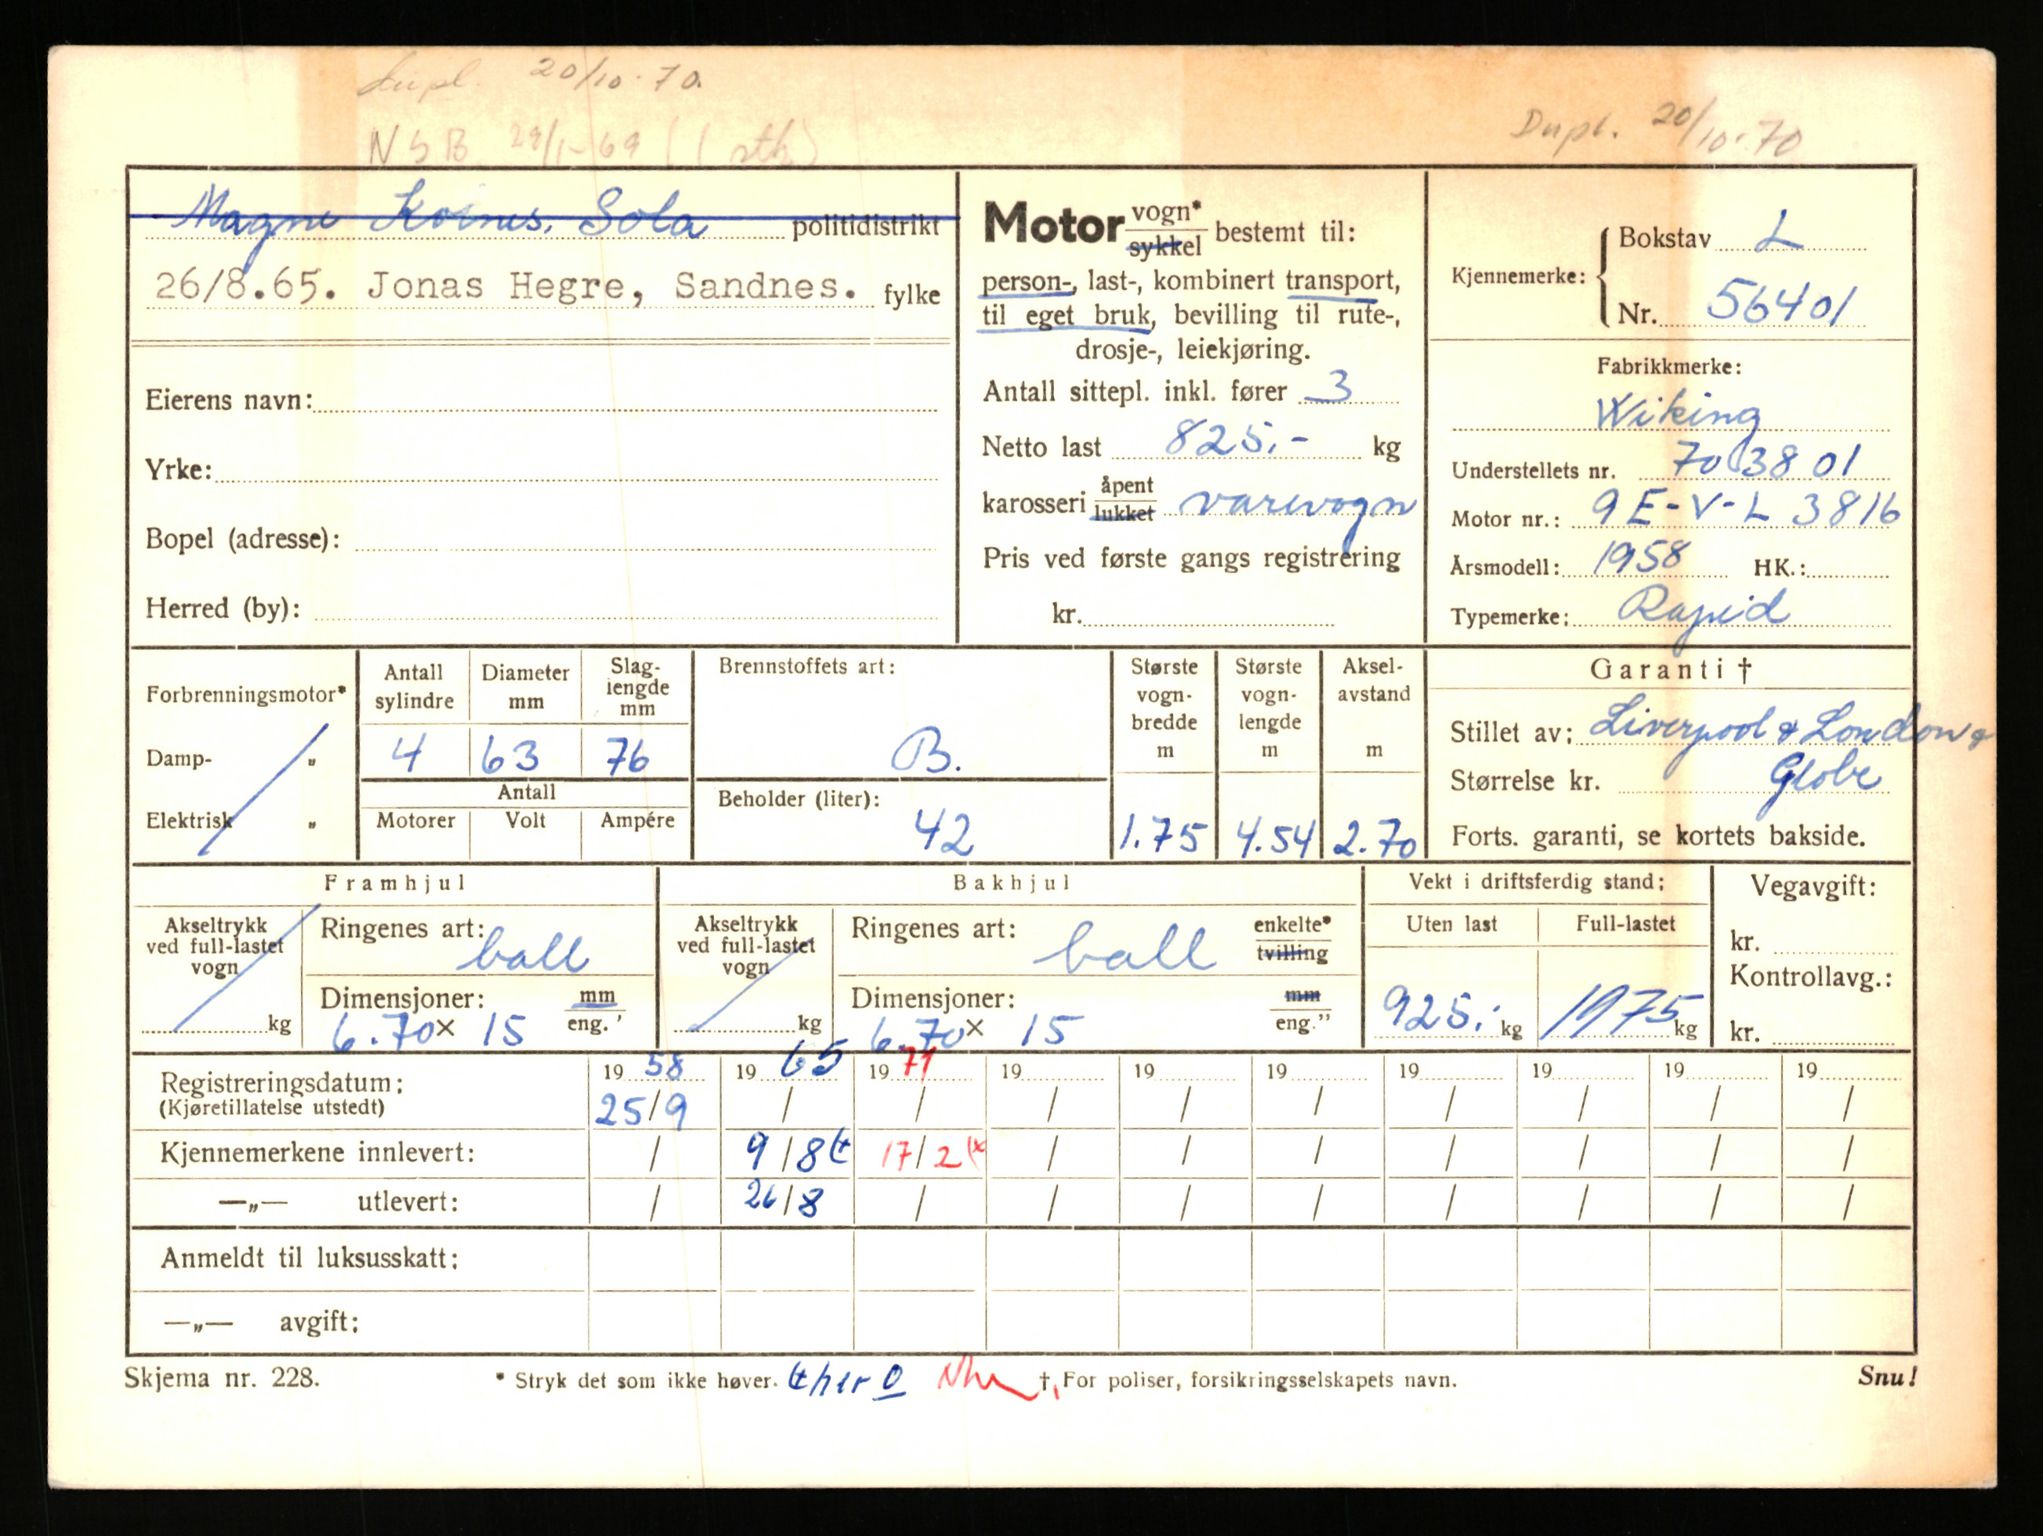 Dupl. 20/10.70
NSB 29/1-69 (1 stk)
Dupl. 20/10.70
Magne Sola politidistrikt
26/8.65. Jonas Hegre, Sandnes. fylke
Eierens navn:
Yrke:
Bopel (adresse):
Herred (by):
Motor vogn* sykkel bestemt til:
person-, last-, kombinert transport,
til eget bruk, bevilling til rute-,
drosje-, leiekjøring.
Antall sittepl. inkl. fører 3
Netto last 825.- kg
karosseri åpent lukket varevogn
Pris ved første gangs registrering
kr.
Kjennemerke: Bokstav L
Nr. 56401
Fabrikkmerke:
Wiking
Understellets nr. 703801
Motor nr.: 9E-V-L 3816
Årsmodell: 1958 HK.:
Typemerke: Rapid
Forbrenningsmotor*
Damp- "
Elektrisk "
Antall sylindre Diameter mm Slag-lengde mm
4 63 76
Antall
Motorer Volt Ampére
Brennstoffets art:
B.
Beholder (liter):
42
Største vogn-bredde m
1.75
Største vogn-lengde m
4.54
Aksel-avstand m
2.70
Garanti †
Stillet av: Liverpool & London &
Størrelse kr. Globe
Forts. garanti, se kortets bakside.
Framhjul
Akseltrykk ved full-lastet vogn kg
Ringenes art: ball
Dimensjoner: mm eng.'
6.70 x 15
Bakhjul
Akseltrykk ved full-lastet vogn kg
Ringenes art: ball enkelte* tvilling
Dimensjoner: mm eng."
6.70 x 15
Vekt i driftsferdig stand:
Uten last Full-lastet
925.- kg 1975 kg
Vegavgift:
kr.
Kontrollavg.:
kr.
Registreringsdatum: 1958 1965 1971 19 19 19 19 19 19 19
(Kjøretillatelse utstedt) 25/9 / / / / / / / / /
Kjennemerkene innlevert: / 9/8 17/2 / / / / / / /
—„— utlevert: / 26/8 / / / / / / / /
Anmeldt til luksusskatt:
—„— avgift:
Skjema nr. 228. * Stryk det som ikke høver. †, For poliser, forsikringsselskapets navn. Snu!